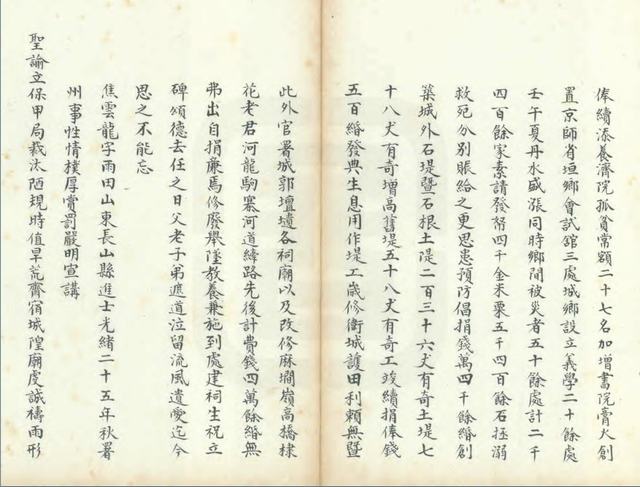 俸續添養濟院孤貧常額二十七名加增書院膏火創
置京師省垣鄉會試舘三處城鄉設立義學二十餘處
壬午夏丹水盛漲同時鄉間被災者五十餘處計二千
四百餘家素請發帑四千金米粟五千四百餘石拯溺
救死分別賬給之更思患預防倡捐錢萬四千餘緡創
築城外石堤暨石根土堤二百三十六丈有奇土堤七
十八丈有奇增高舊堤五十八丈有奇工竣續捐俸錢
五百緡發典生息用作堤工歲修衛城護田利賴無暨
此外官署城郭壇壝各祠廟以及改修麻澗嶺高橋棣
花老君河龍駒寨河道縴路先後計費錢四萬餘緡無
弗出自捐廉焉修廢舉墜教養兼施到處建祠生祝立
碑頌德去任之日父老子弟遮道泣留流風遺愛迄今
思之不能忘
焦雲龍字雨田山東長山縣進士光緒二十五年秋署
州事性情樸厚賞罰嚴明宣講
聖諭立保甲局裁汰陋規時值旱荒齋宿城隍廟虔誠禱雨形